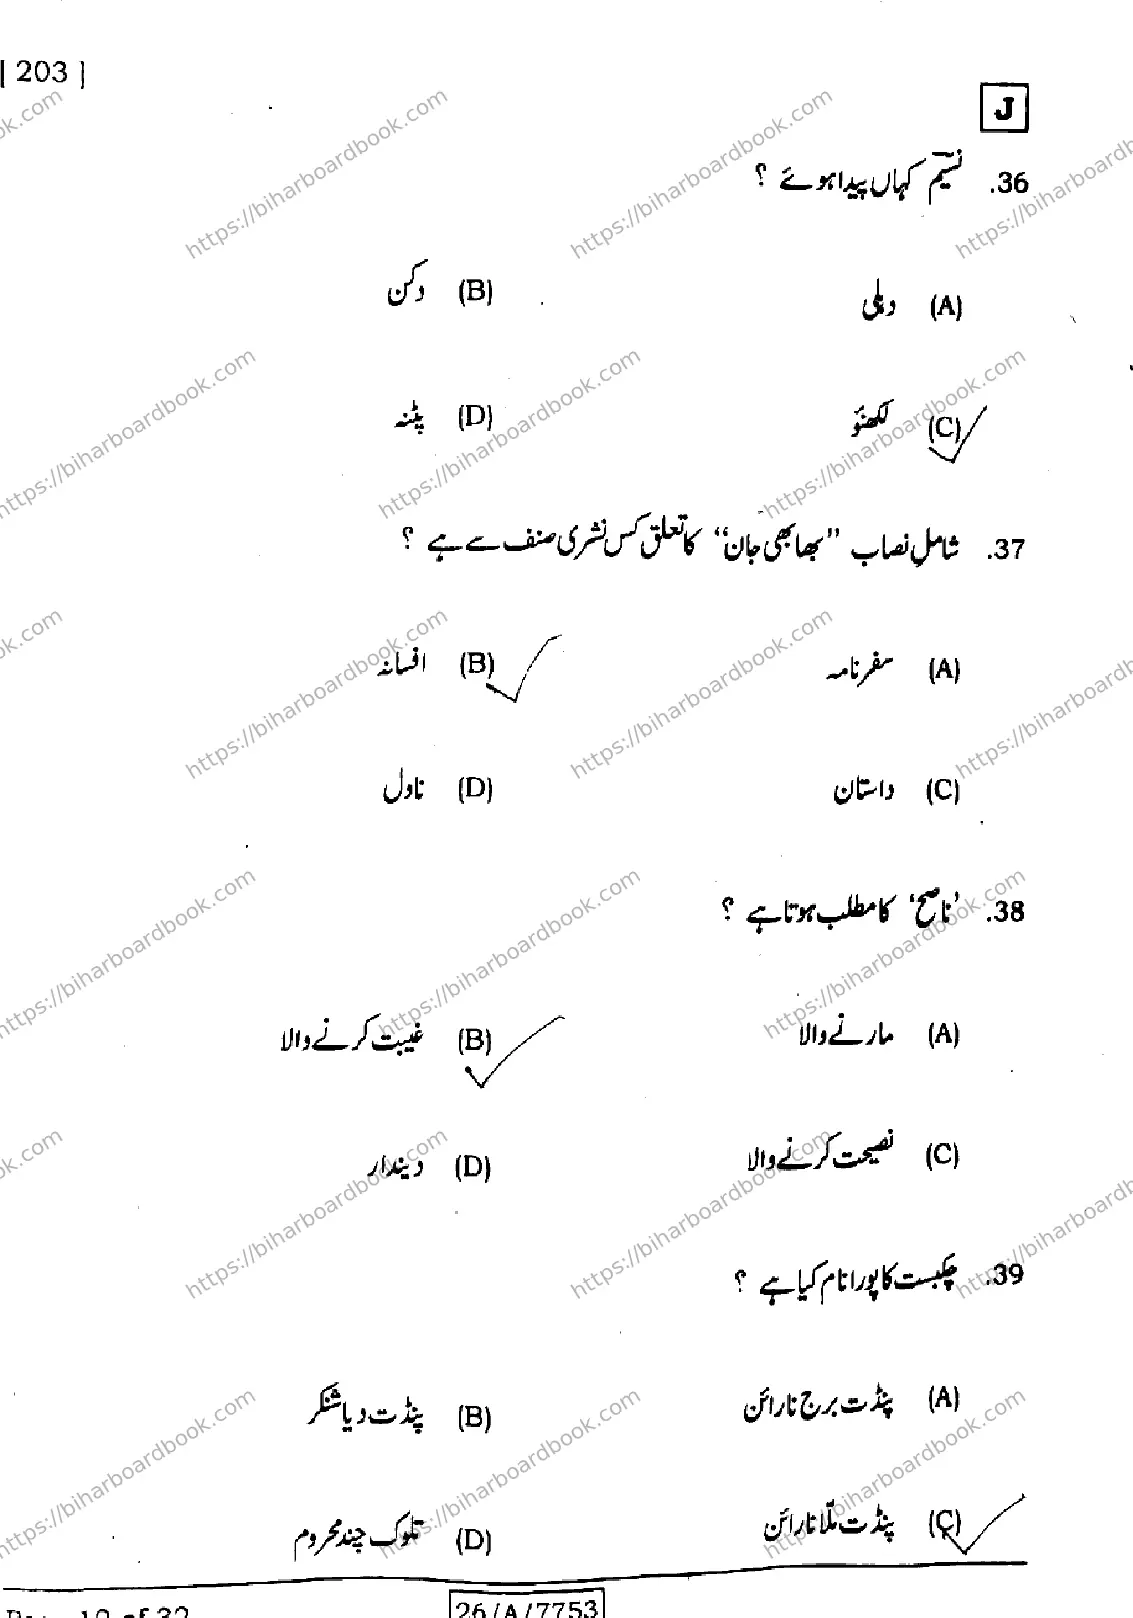 [ 203 ]
J
36. نسیم کہاں پیدا ہوئے ؟
(A) دہلی (B) دکن
(C) لکھنؤ (D) پٹنہ
37. شامل نصاب ’’بھابھی جان‘‘ کا تعلق کس نثری صنف سے ہے ؟
(A) سفرنامہ (B) افسانہ
(C) داستان (D) ناول
38. ’ناصح‘ کا مطلب ہوتا ہے ؟
(A) مارنے والا (B) غیبت کرنے والا
(C) نصیحت کرنے والا (D) دیندار
39. چکبست کا پورا نام کیا ہے ؟
(A) پنڈت برج نارائن (B) پنڈت دیا شنکر
(C) پنڈت ملّا نارائن (D) تلوک چند محروم
26/A/7753
https://biharboardbook.com